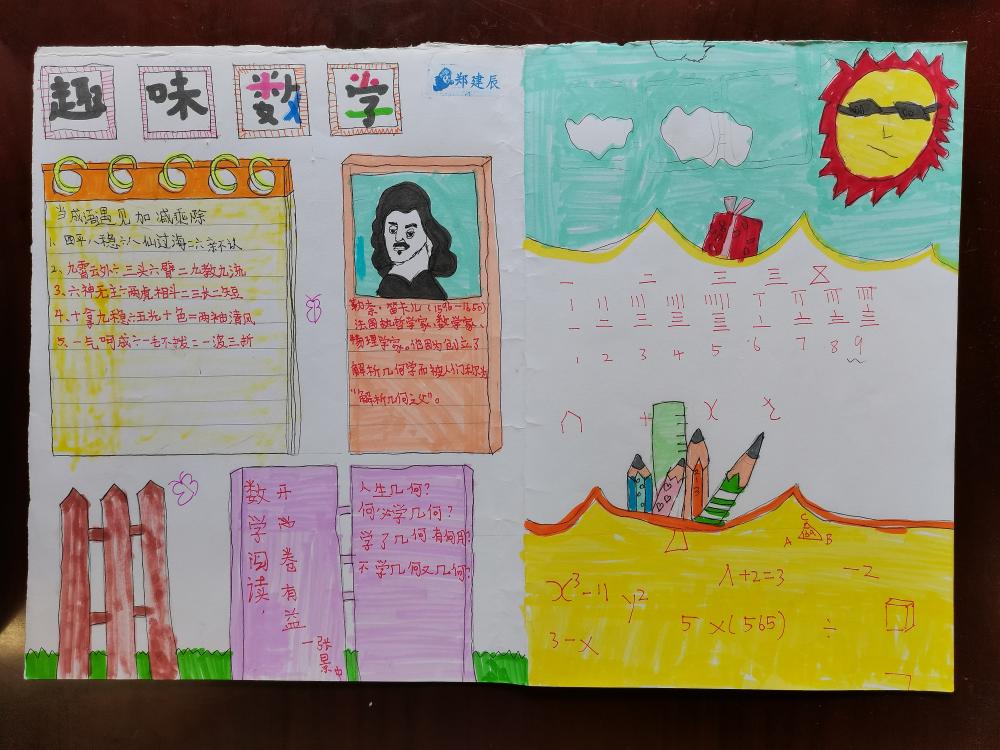 趣味数学
郑建辰
当成语遇见加减乘除
1、四平八稳÷八仙过海=六亲不认
2、九霄云外÷三头六臂=九教九流
3、六神无主÷两虎相斗=三长二短
4、十拿九稳÷五光十色=两袖清风
5、一气呵成÷一毛不拔=一波三折
勒奈·笛卡儿(1596-1650)
法国哲学家、数学家、
物理学家。他因为创立了
解析几何学而被人们称为
“解析几何之父”。
数学阅读，
开卷有益
一张景中
人生几何?
何必学几何?
学了几何有何用?
不学几何又几何?
一 二 三 三 X
1 2 3 4 5 6 7 8 9
+ X
C
A B
x³-11
y²
1+2=3
-2
3-x
5x(565)
÷